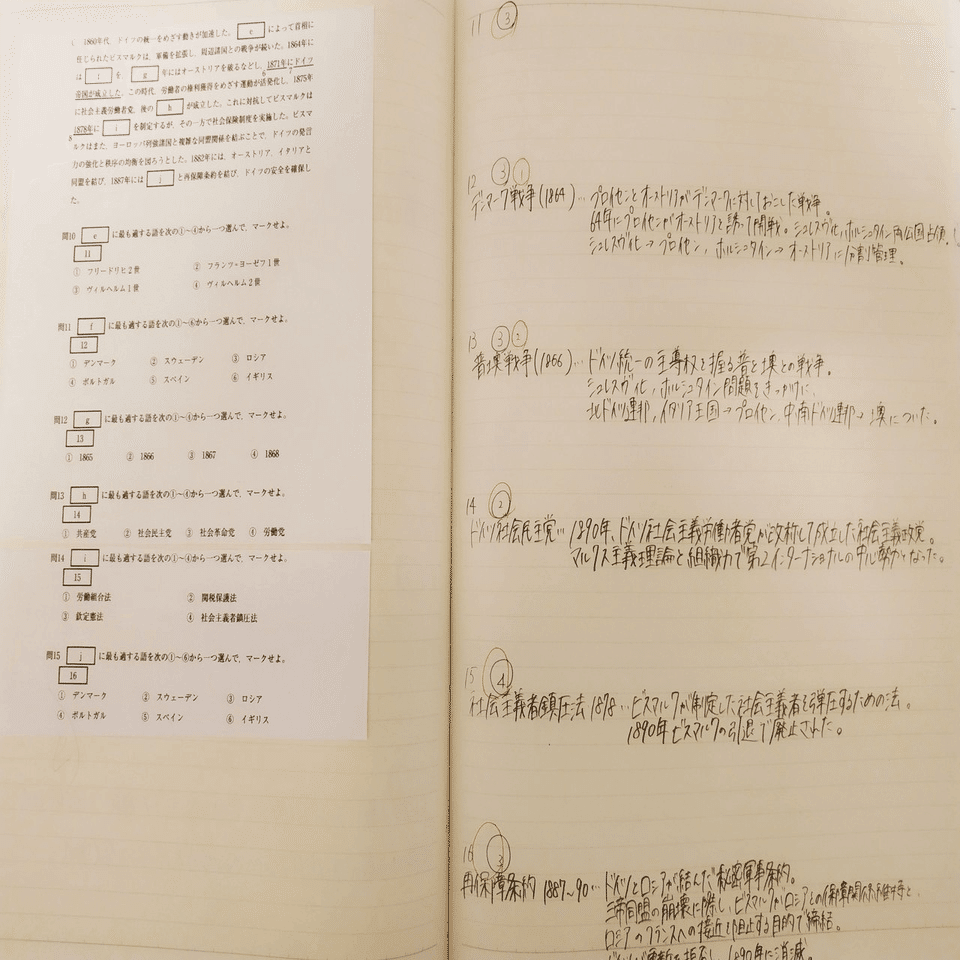 1860年代、ドイツの統一をめざす動きが加速した。 e によって首相に
任じられたビスマルクは、軍備を拡張し、周辺諸国との戦争が続いた。1864年に
は f を、 g 年にはオーストリアを破るなどし、1871年にドイツ
6 7
帝国が成立した。この時代、労働者の権利獲得をめざす運動が活発化し、1875年
に社会主義労働者党、後の h が成立した。これに対抗してビスマルクは
1878年に i を制定するが、その一方で社会保険制度を実施した。ビスマ
8
ルクはまた、ヨーロッパ列強諸国と複雑な同盟関係を結ぶことで、ドイツの発言
力の強化と秩序の均衡を図ろうとした。1882年には、オーストリア、イタリアと
同盟を結び、1887年には j と再保障条約を結び、ドイツの安全を確保し
た。
問10 e に最も適する語を次の①〜④から一つ選んで、マークせよ。
11
① フリードリヒ2世 ② フランツ=ヨーゼフ1世
③ ヴィルヘルム1世 ④ ヴィルヘルム2世
問11 f に最も適する語を次の①〜⑥から一つ選んで、マークせよ。
12
① デンマーク ② スウェーデン ③ ロシア
④ ポルトガル ⑤ スペイン ⑥ イギリス
問12 g に最も適する語を次の①〜④から一つ選んで、マークせよ。
13
① 1865 ② 1866 ③ 1867 ④ 1868
問13 h に最も適する語を次の①〜④から一つ選んで、マークせよ。
14
① 共産党 ② 社会民主党 ③ 社会革命党 ④ 労働党
問14 i に最も適する語を次の①〜④から一つ選んで、マークせよ。
15
① 労働組合法 ② 関税保護法
③ 欽定憲法 ④ 社会主義者鎮圧法
問15 j に最も適する語を次の①〜⑥から一つ選んで、マークせよ。
16
① デンマーク ② スウェーデン ③ ロシア
④ ポルトガル ⑤ スペイン ⑥ イギリス
11 ③
12 ③ ①
デンマーク戦争(1864)… プロイセンとオーストリアがデンマークに対しておこした戦争。
64年にプロイセンがオーストリアを誘って開戦。シュレスヴィヒ,ホルシュタイン両公国占領。
シュレスヴィヒ→プロイセン, ホルシュタイン→オーストリアに分割管理。
13 ③ ②
普墺戦争(1866)… ドイツ統一の主導権を握る普と墺との戦争。
シュレスヴィヒ, ホルシュタイン問題をきっかけに,
北ドイツ連邦, イタリア王国→プロイセン, 中南ドイツ連邦→墺についた。
14 ②
ドイツ社会民主党… 1890年、ドイツ社会主義労働者党が改称して成立した社会主義政党。
マルクス主義理論と組織力で第2インターナショナルの中心勢力となった。
15 ④
社会主義者鎮圧法 1878… ビスマルクが制定した社会主義者を弾圧するための法。
1890年ビスマルクの引退で廃止された。
16 ③
再保障条約 1887〜90… ドイツとロシアが結んだ秘密軍事条約。
三帝同盟の崩壊に際し、ビスマルクがロシアとの保障関係維持と、
ロシアのフランスへの接近を阻止する目的で締結。
ドイツが更新を拒否し、1890年に消滅。